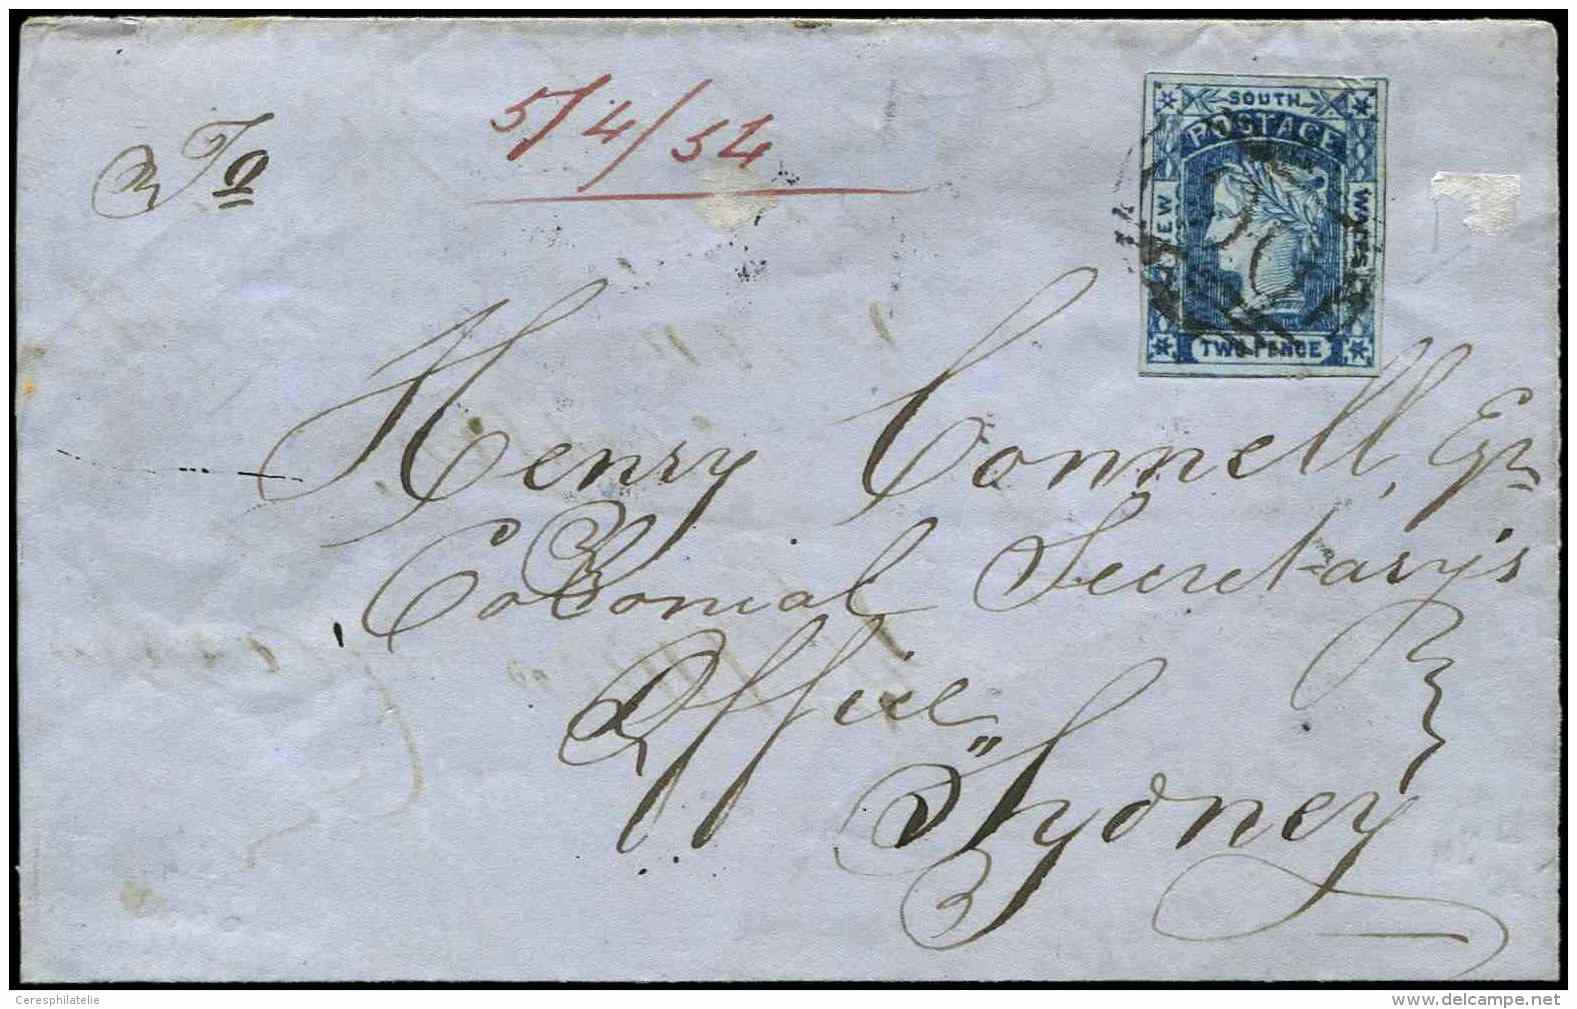 To
5/4/54
SOUTH
POSTAGE
NEW
WALES
TWO PENCE
Henry Connell, Esqr
Colonial Secretary's
Office
"Sydney
Ceresphilatelie
www.delcampe.net